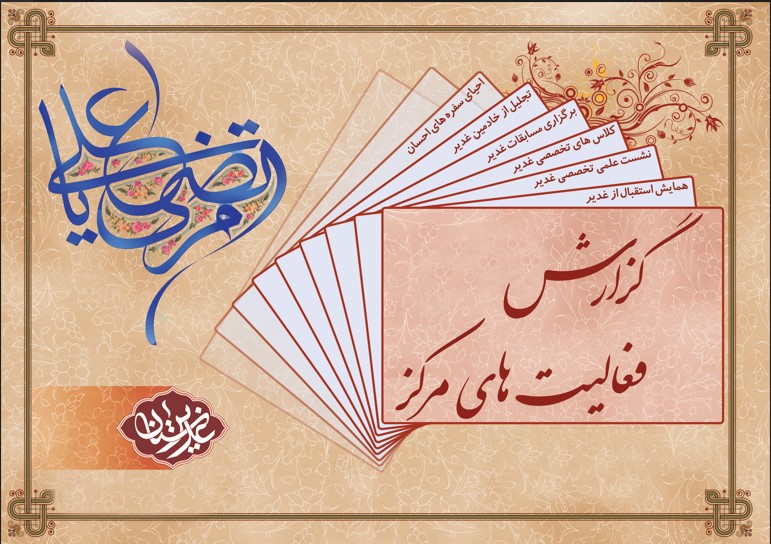 احیای سفره های احسان
تجلیل از خادمین غدیر
برگزاری مسابقات غدیر
کلاس های تخصصی غدیر
نشست علمی تخصصی غدیر
همایش استقبال از غدیر
یا علی مرتضی
گزارش
فعالیت های مرکز
غدیرستان